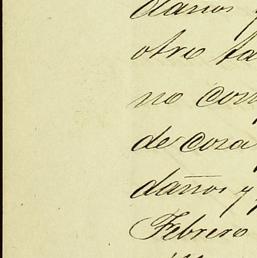 daños y
otro ta
no com
de coza
daños y
Febrero